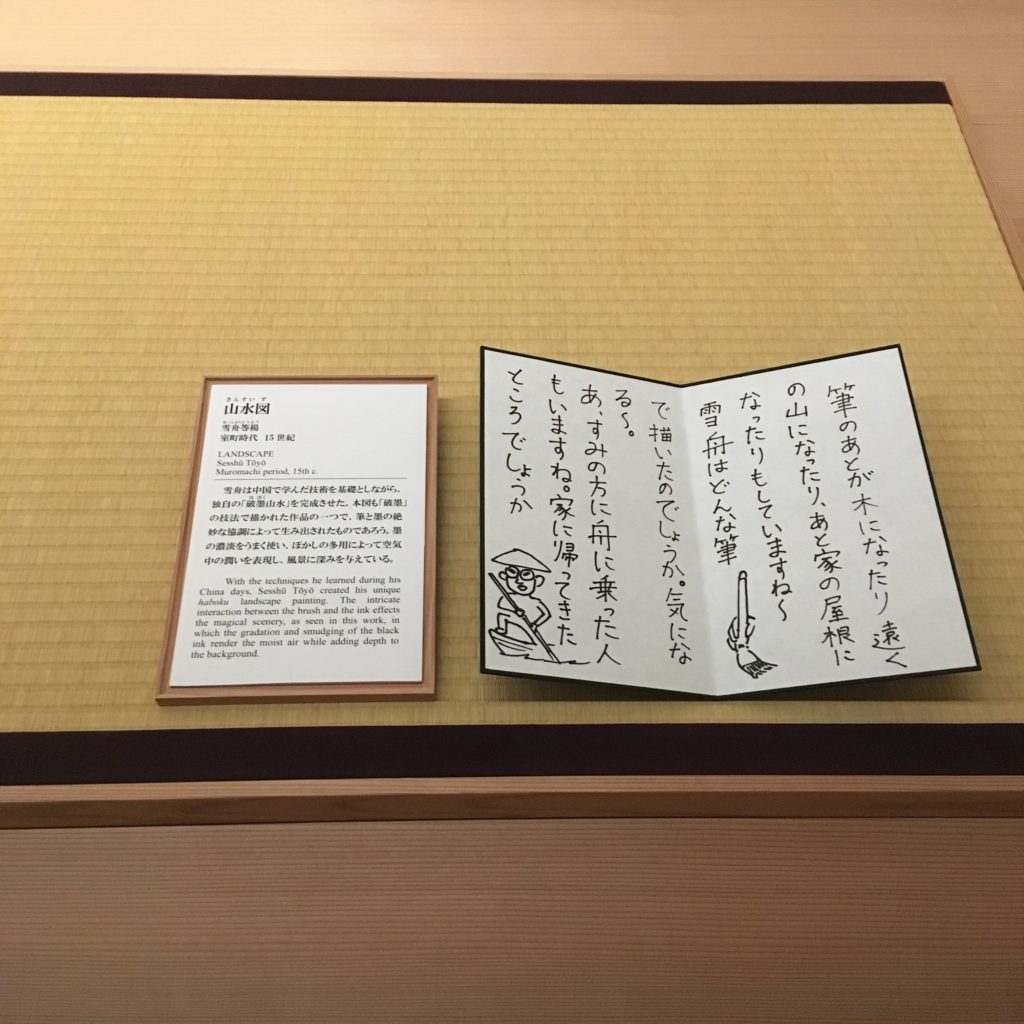 さんすいず
山水図
せっしゅうとうよう
雪舟等楊
室町時代 15世紀
LANDSCAPE
Sesshū Tōyō
Muromachi period, 15th c.
雪舟は中国で学んだ技術を基礎としながら、
はぼく
独自の「破墨山水」を完成させた。本図も「破墨」
の技法で描かれた作品の一つで、筆と墨の絶
妙な協調によって生み出されたものであろう。墨
の濃淡をうまく使い、ぼかしの多用によって空気
中の潤いを表現し、風景に深みを与えている。
With the techniques he learned during his
China days, Sesshū Tōyō created his unique
haboku landscape painting. The intricate
interaction between the brush and the ink effects
the magical scenery, as seen in this work, in
which the gradation and smudging of the black
ink render the moist air while adding depth to
the background.
筆のあとが木になったり遠く
の山になったり、あと家の屋根に
なったりもしていますね〜
雪舟はどんな筆
で描いたのでしょうか。気にな
る〜。
あ、すみの方に舟に乗った人
もいますね。家に帰ってきた
ところでしょうか